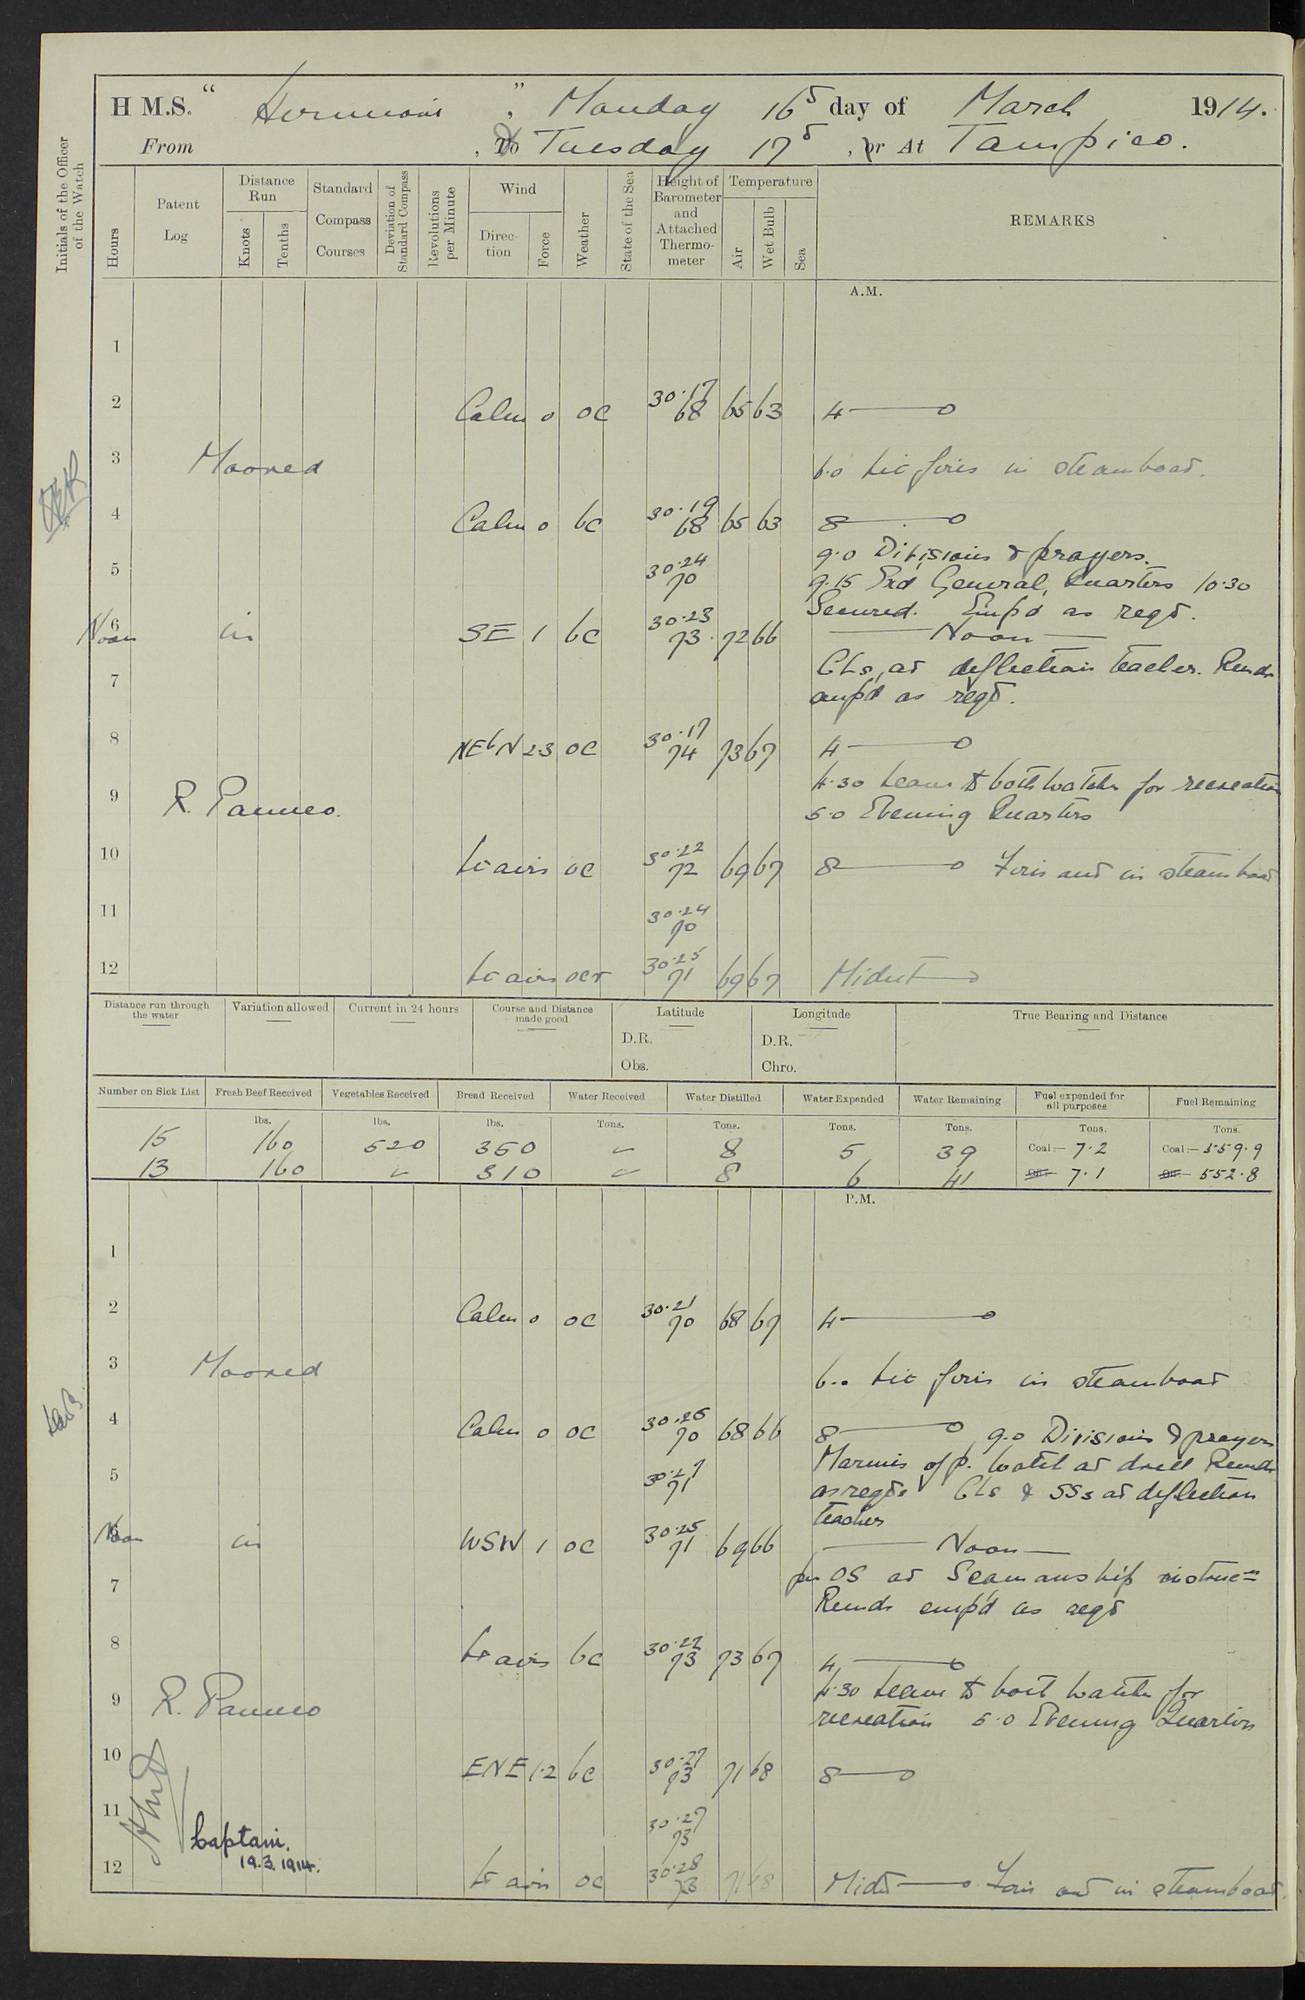 H M.S. " Hermione " , Monday 16th day of March 1914.
From , & Tuesday 17th , or At Tampico.
Initials of the Officer of the Watch
Hours
Patent Log
Distance Run
Knots
Tenths
Standard Compass Courses
Deviation of Standard Compass
Revolutions per Minute
Wind
Direction
Force
Weather
State of the Sea
Height of Barometer and Attached Thermometer
Temperature
Air
Wet Bulb
Sea
REMARKS
A.M.
1
2 Calm 0 oc 30.17 68 65 63 4
3 Moored 6.0 Lit fires in steamboat.
4 Calm 0 bc 30.19 68 65 63 8
9.0 Divisions & prayers.
5 30.24 70 9.15 Exd General Quarters 10.30
Secured. Emp'd as reqd.
6 Noon in SE 1 bc 30.23 73 72 66 Noon
GLs at deflection teacher. Remdr
7 emp'd as reqd.
8 NEbN 2.3 oc 30.17 74 73 67 4
4.30 Leave to both watches for recreation
9 R. Panuco. 5.0 Evening Quarters
10 Lt airs oc 30.22 72 69 67 8 Fires out in steamboat
11 30.24 70
12 Lt airs ocr 30.25 71 69 67 Midnt
Distance run through the water
Variation allowed
Current in 24 hours
Course and Distance made good
Latitude
D.R.
Obs.
Longitude
D.R.
Chro.
True Bearing and Distance
Number on Sick List
Fresh Beef Received
Vegetables Received
Bread Received
Water Received
Water Distilled
Water Expended
Water Remaining
Fuel expended for all purposes
Fuel Remaining
lbs. lbs. lbs. Tons. Tons. Tons. Tons. Tons. Tons.
15 160 520 350 8 5 39 Coal:— 7.2 Coal:— 559.9
13 160 310 8 6 41 7.1 552.8
P.M.
1
2 Calm 0 oc 30.21 70 68 67 4
3 Moored 6.0 Lit fires in steamboat
4 Calm 0 oc 30.26 70 68 66 8 9.0 Divisions & prayers
Marines of p. watch at drill Remdr
5 30.27 71 as reqd. GLs & SSs at deflection
teacher
Noon in WSW 1 oc 30.25 71 69 66 Noon
pm OS at Seamanship instrucn
7 Remdr emp'd as reqd
8 Lt airs bc 30.22 73 73 67 4
4.30 Leave to both watches for
9 R. Panuco recreation 5.0 Evening Quarters
10 ENE 1.2 bc 30.27 73 71 68 8
11 30.27 73
Captain.
19.3.1914.
12 Lt airs oc 30.28 73 71 68 Midt Fires out in steamboat